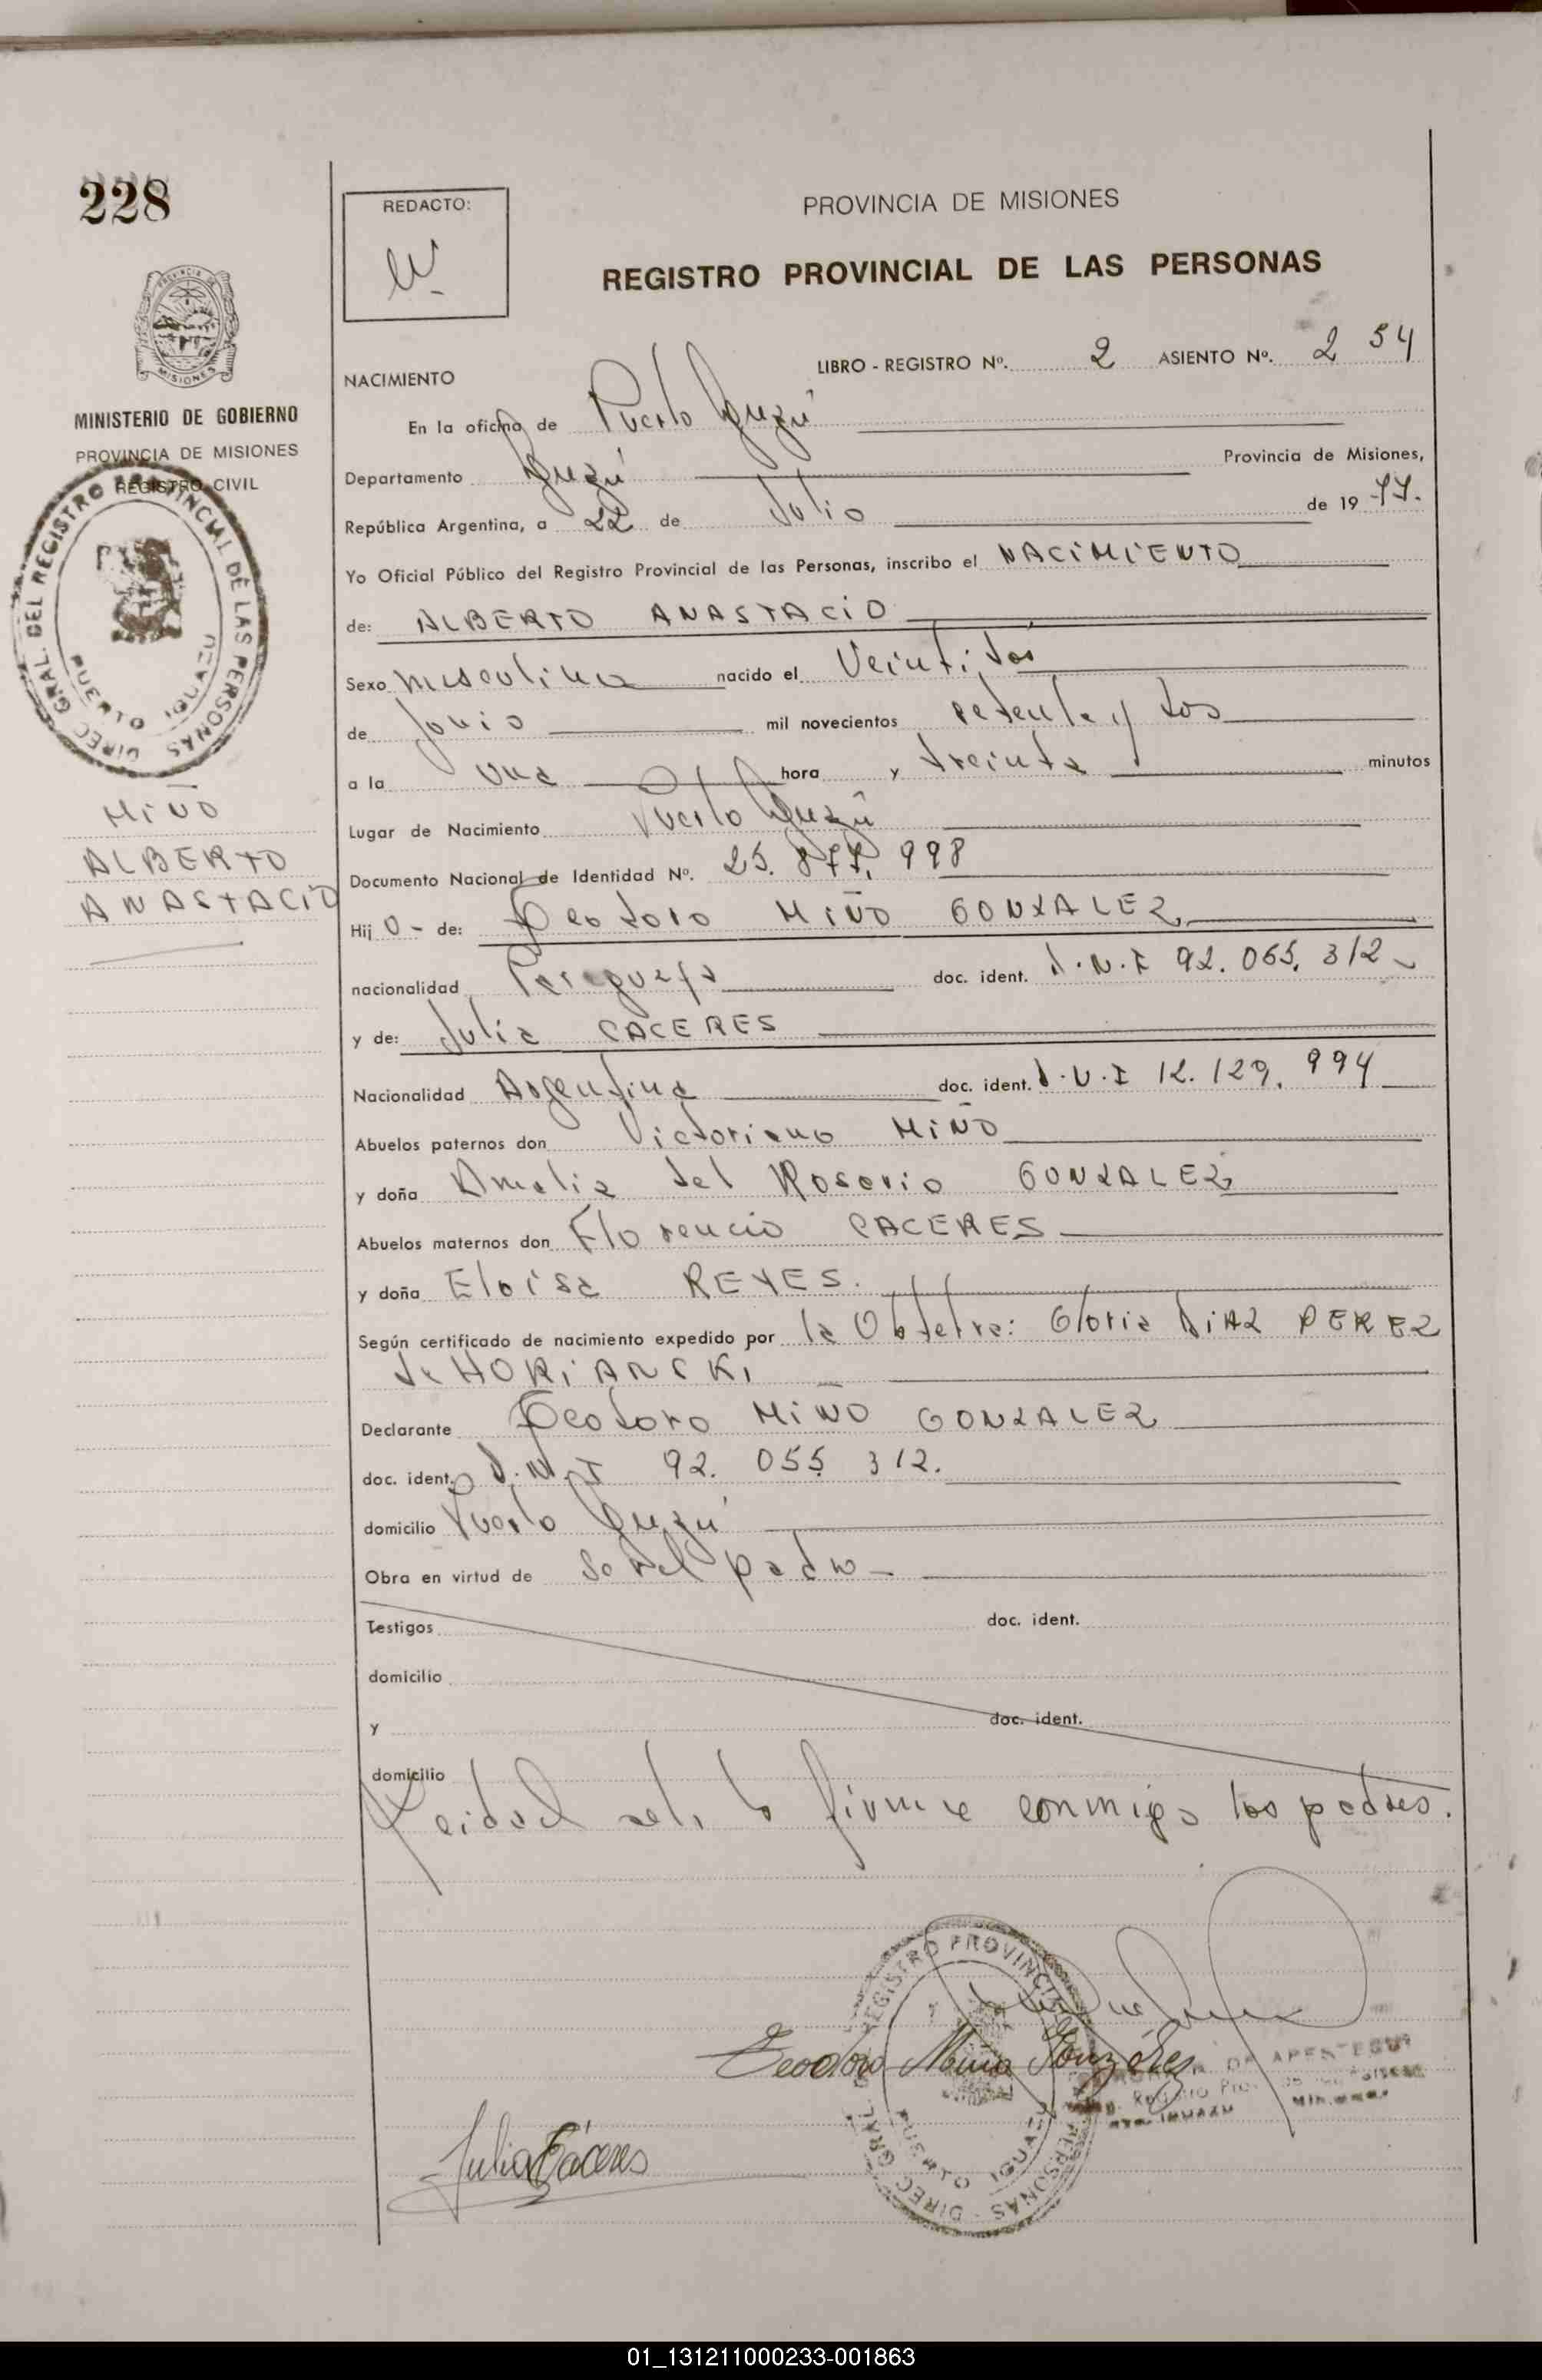 228
REDACTO:
PROVINCIA DE MISIONES
REGISTRO PROVINCIAL DE LAS PERSONAS
MISIONES
MINISTERIO DE GOBIERNO
PROVINCIA DE MISIONES
REGISTRO CIVIL
DIREC GRAL. DEL REGISTRO PROVINCIAL DE LAS PERSONAS
PUERTO IGUAZU
MIÑO
ALBERTO
ANASTACIO
LIBRO - REGISTRO Nº. 2 ASIENTO Nº. 254
NACIMIENTO
En la oficina de Puerto Iguazú
Departamento Iguazú Provincia de Misiones,
República Argentina, a 22 de Julio de 1977.
Yo Oficial Público del Registro Provincial de las Personas, inscribo el NACIMIENTO
de: ALBERTO ANASTACIO
Sexo masculino nacido el Veintidos
de Junio mil novecientos setenta y dos
a la una hora y treinta minutos
Lugar de Nacimiento Puerto Iguazú
Documento Nacional de Identidad Nº. 25.877.998
Hij o - de: Teodoro MIÑO GONZALEZ
nacionalidad Paraguaya doc. ident. D.N.I 92.055.312
y de: Julia CACERES
Nacionalidad Argentina doc. ident. D.N.I 12.129.994
Abuelos paternos don Victoriano MIÑO
y doña Amelia del Rosario GONZALEZ
Abuelos maternos don Florencio CACERES
y doña Eloisa REYES.
Según certificado de nacimiento expedido por la Obstetra: Gloria DIAZ PEREZ
de HORIANSKI
Declarante Teodoro MIÑO GONZALEZ
doc. ident. D.N.I 92. 055 312.
domicilio Puerto Iguazú
Obra en virtud de ser el padre -
Testigos doc. ident.
domicilio
y doc. ident.
domicilio
Leida el acta la firman conmigo los padres.
DIREC GRAL. REGISTRO PROVINCIAL PERSONAS
PUERTO IGUAZU
Teodoro Mino González
DE APESTEGUI
PTO. IGUAZU
Julia Cáceres
01_131211000233-001863